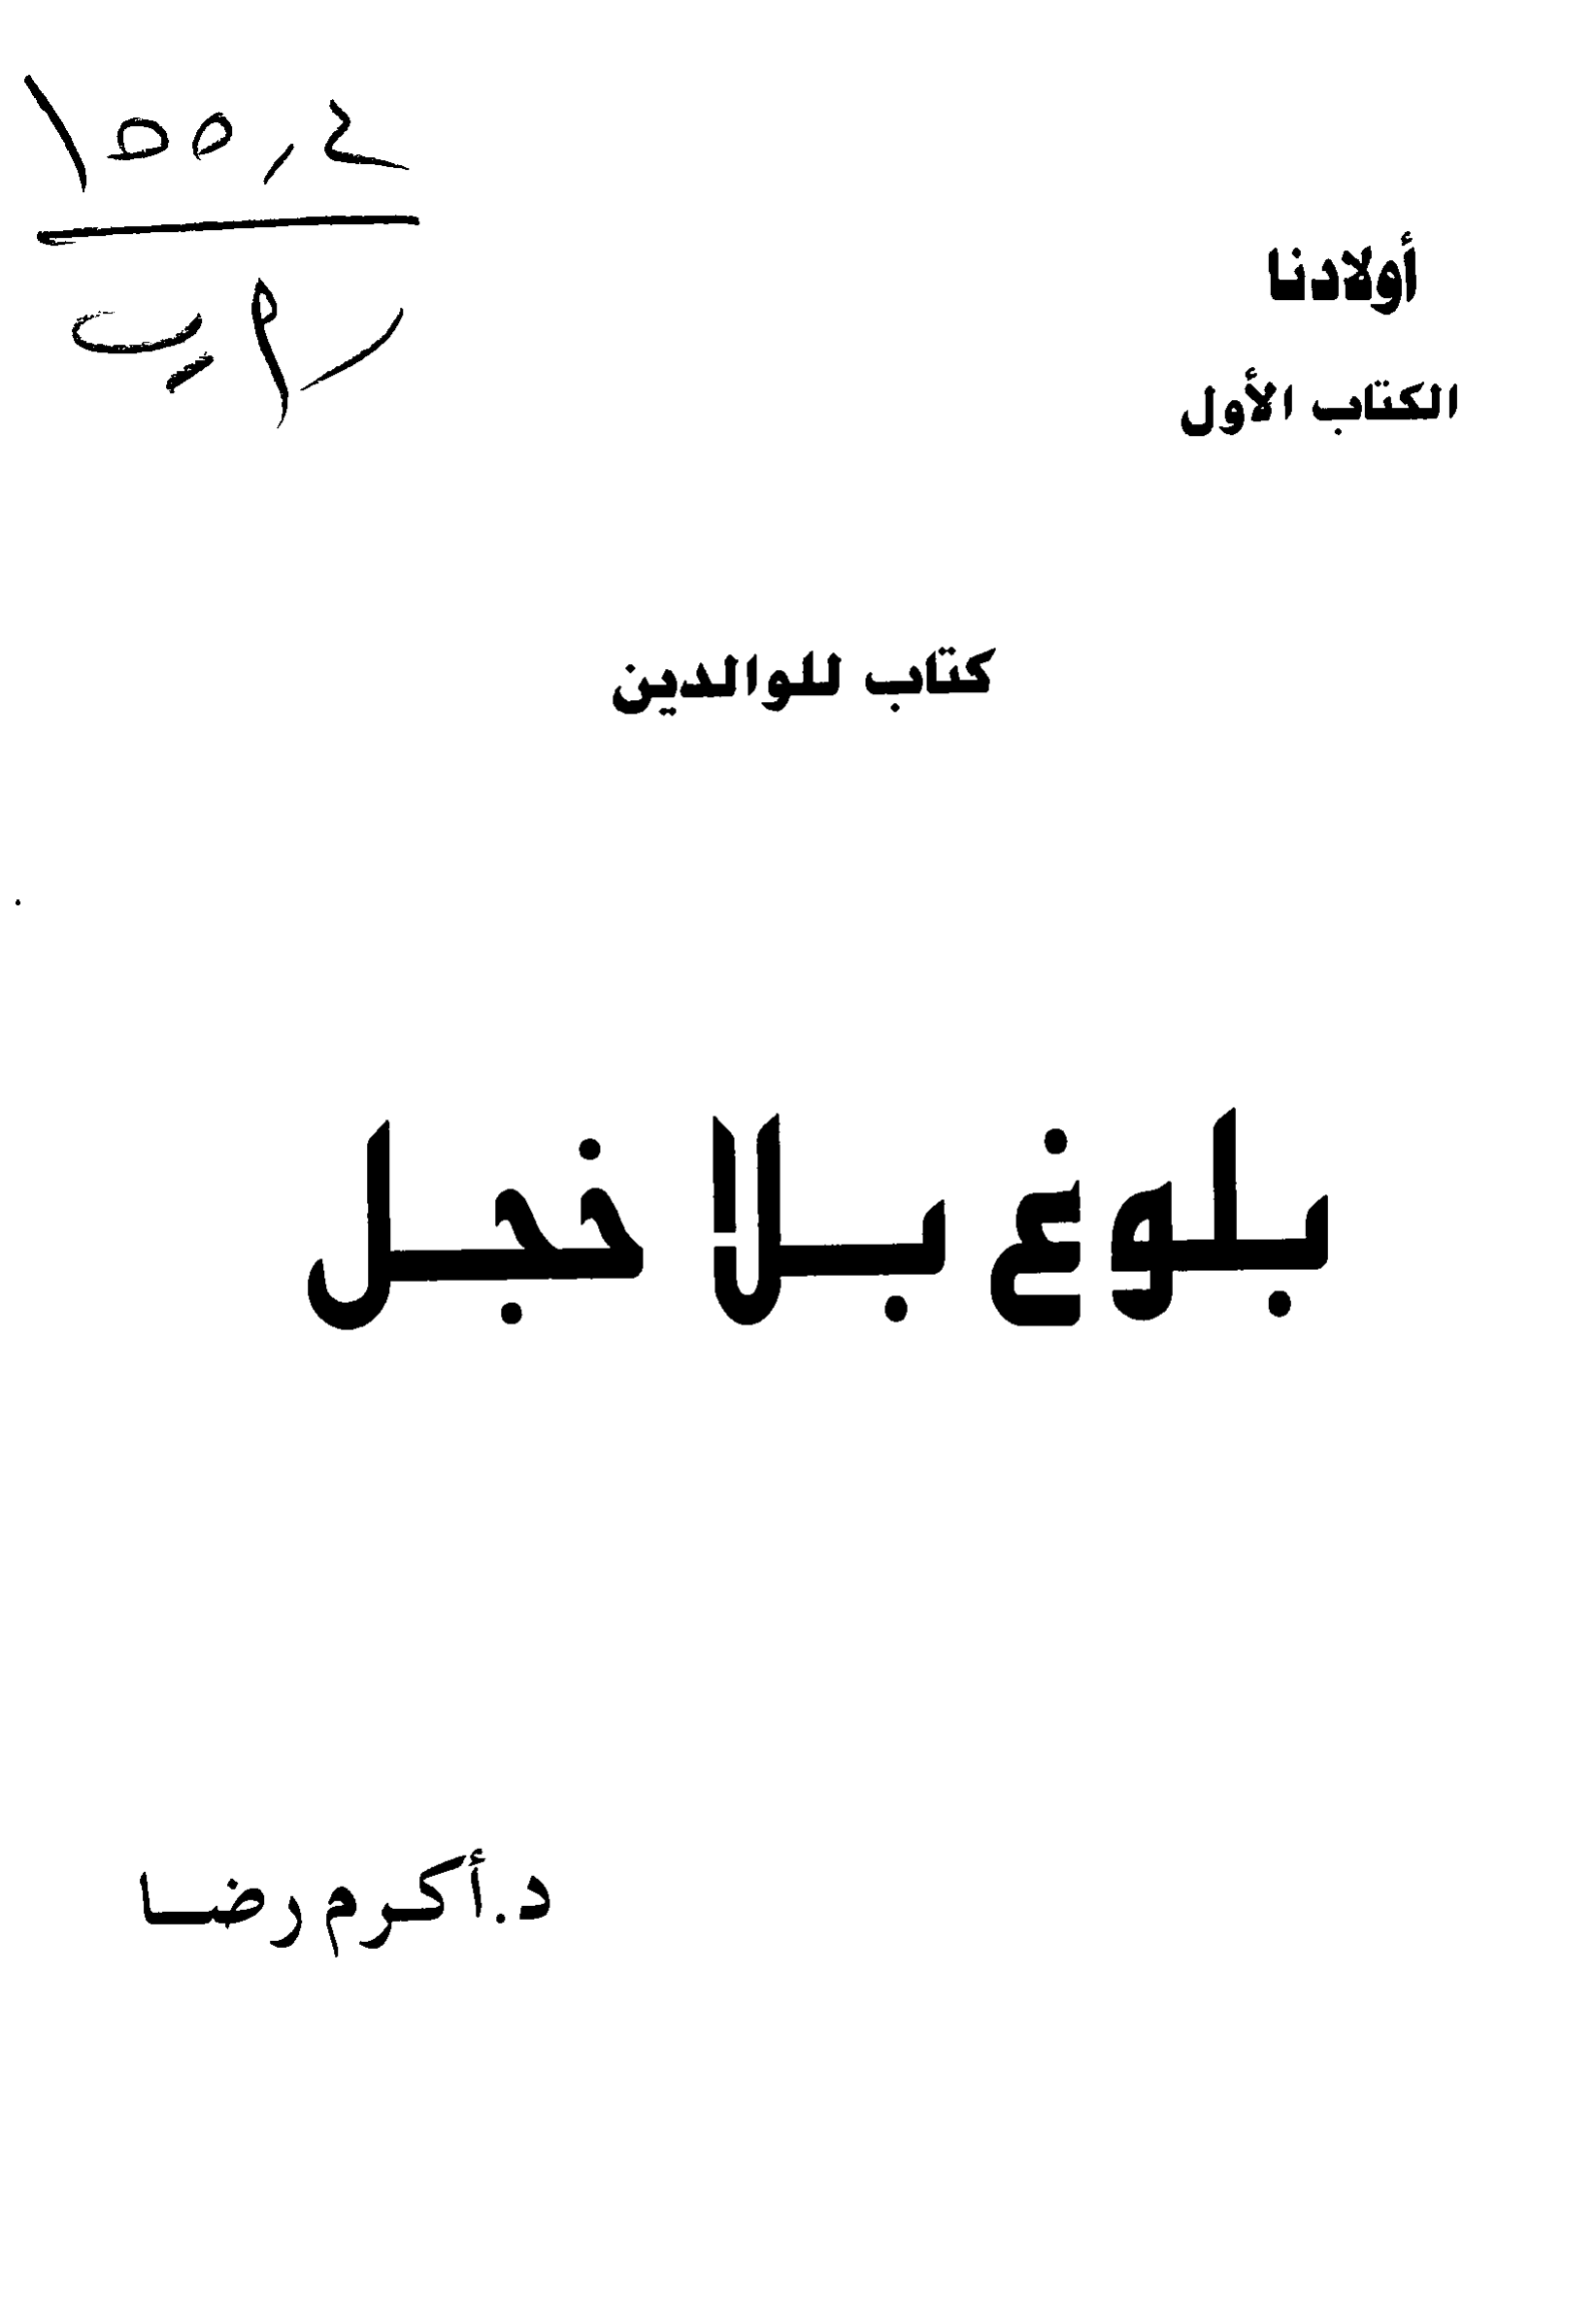 ١٥٥,٤
ر م ب
أولادنا
الكتاب الأول
كتاب للوالدين
بلوغ بلا خجل
د. أكرم رضا